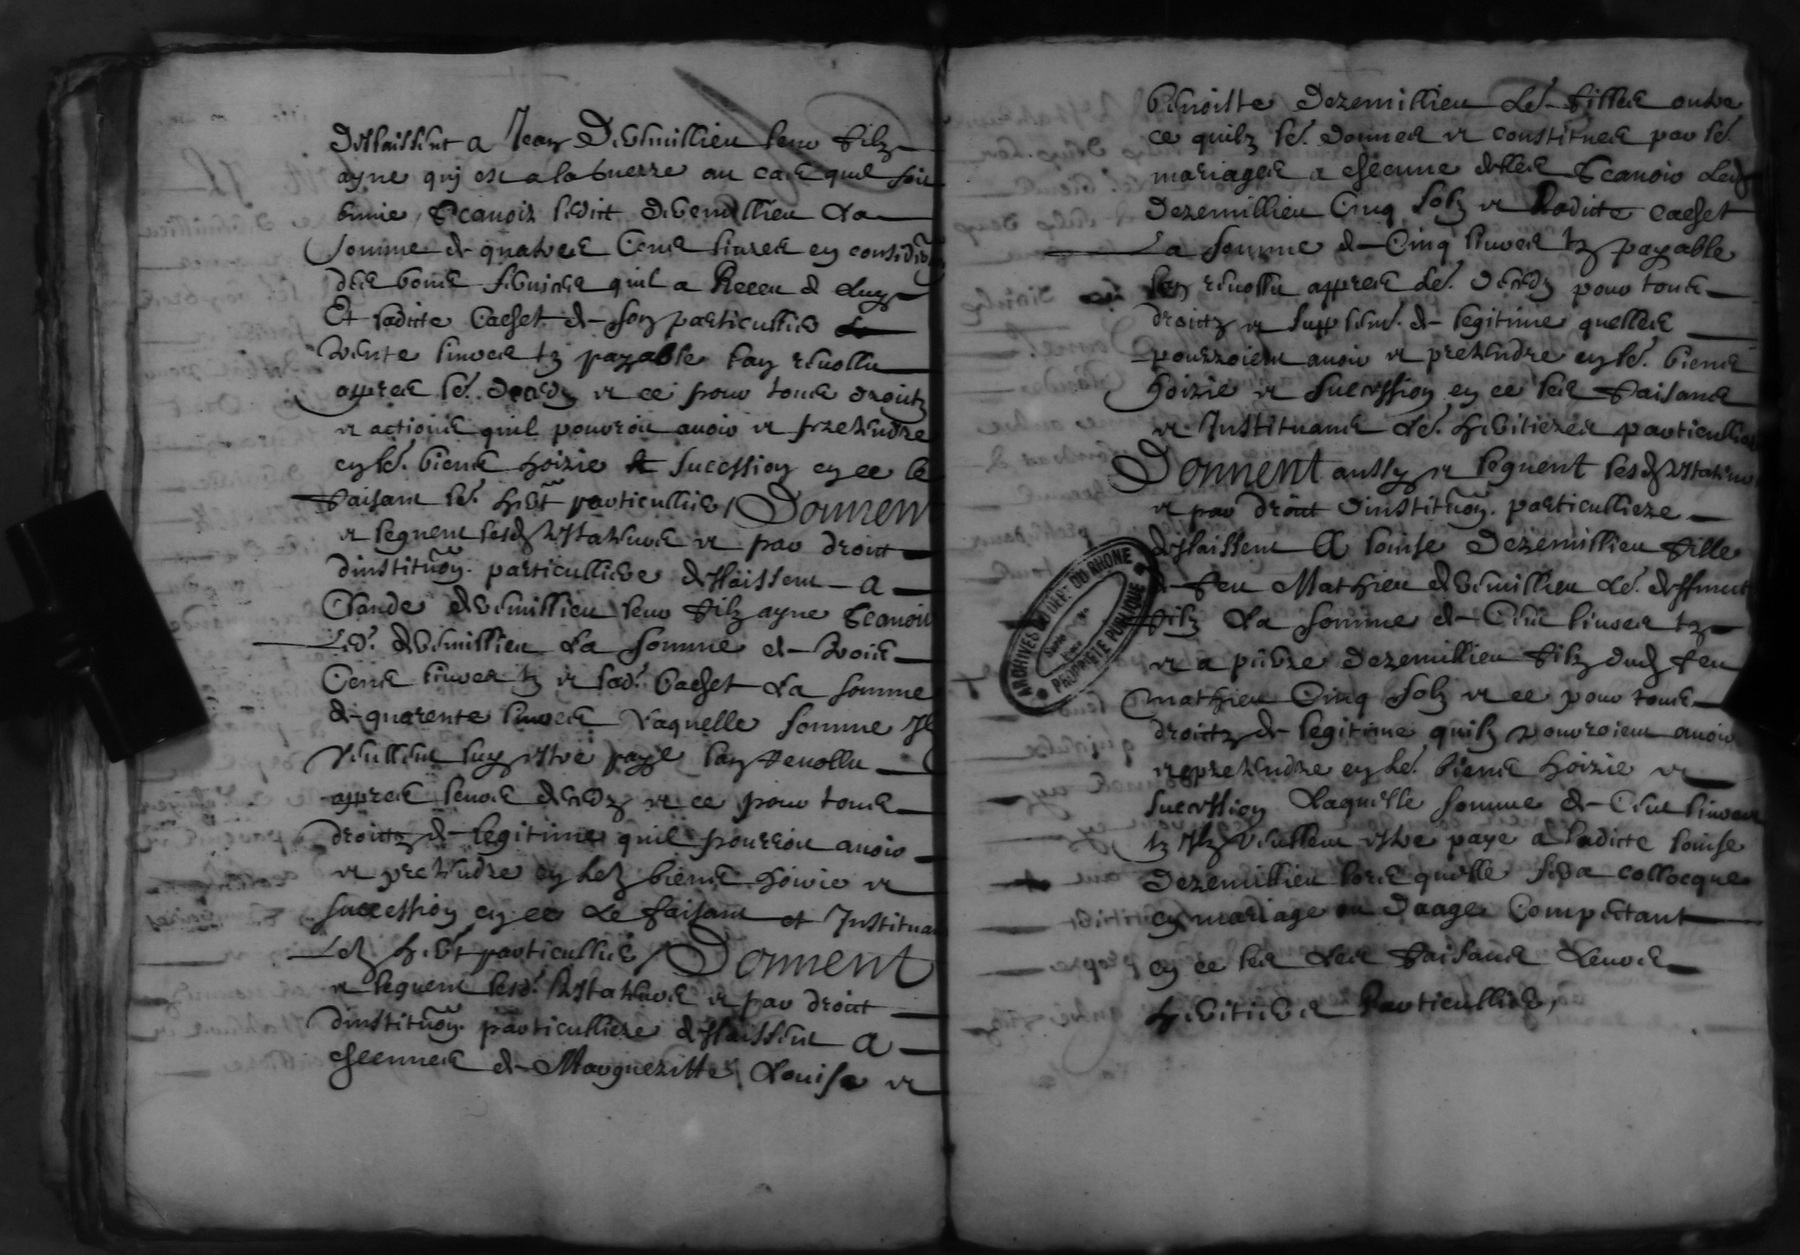 dellaissent a Jean Dezemillieu leur filz
ayne qui est a la guerre au cas quil soit
en vie scavoir ledict dezemillieu la
somme de quatre cens livres en consideraon
des bons services quil a Receu d eluy
Et ladicte Cachet de son particullier
trente livres tz payable lan revollu
appres led. deces et ce pour tous droitz
et actions quil pourroit avoir et pretendre
en led. biens hoirie et sucession en ce le
faisant led. herit particullier / Donnent
et leguent lesd testateurs et par droict
dinstituon. particulliere dellaissent a
Claude dezemillieu leur filz ayne scavoir
Led. dezemillieu la somme de trois
Cens livres tz et lad. Cachet la somme
de quarente livres Laquelle somme Ilz
veullent luy estre paye lan revollu
appres leurs decedz et ce pour tous
droictz de legitime quil pourroit avoir
et pretendre en lesd biens hoirie et
succession en ce le faisant et Instituant
Led herit particullier / Donnent
et leguent lesd. testateurs et par droict
dinstituon. particulliere dellaissent a
checunes de Margueritte Louise et
benoiste dezemillieu led. filles outre
ce quilz led. donnes et constitues par led.
mariages a checune delles scavoir Led
dezemillieu Cinq solz et Ladicte cachet
La somme de Cinq livres tz payable
lan revollu appres led. decedz pour tous
droictz et supplemt. de legitime quelles
pourroient avoir et pretendre en led. biens
hoirie et sucession en ce les faisans
et Instituans led. heritieres particullieres
Donnent aussy et leguent lesd testateurs
et par droict dinstituon. particulliere
dellaissent A louise dezemillieu fille
de feu Mathieu dezemillieu led. deffunct
filz la somme de Cent livres tz
et a pierre dezemillieu filz dud feu
mathieu Cinq solz et ce pour tous
droictz de legitime quilz pourroient avoir
et pretendre en led. biens hoirie et
sucession Laquelle somme de Cent livres
tz Ilz veullent estre paye a ladicte louise
dezemillieu lors quelle sera collocque
en mariage ou daage Competant
en ce les les faisans leurs
heritiers Particulliers,
ARCHIVES DU DEPT DU RHONE
PROPRIETE PUBLIQUE